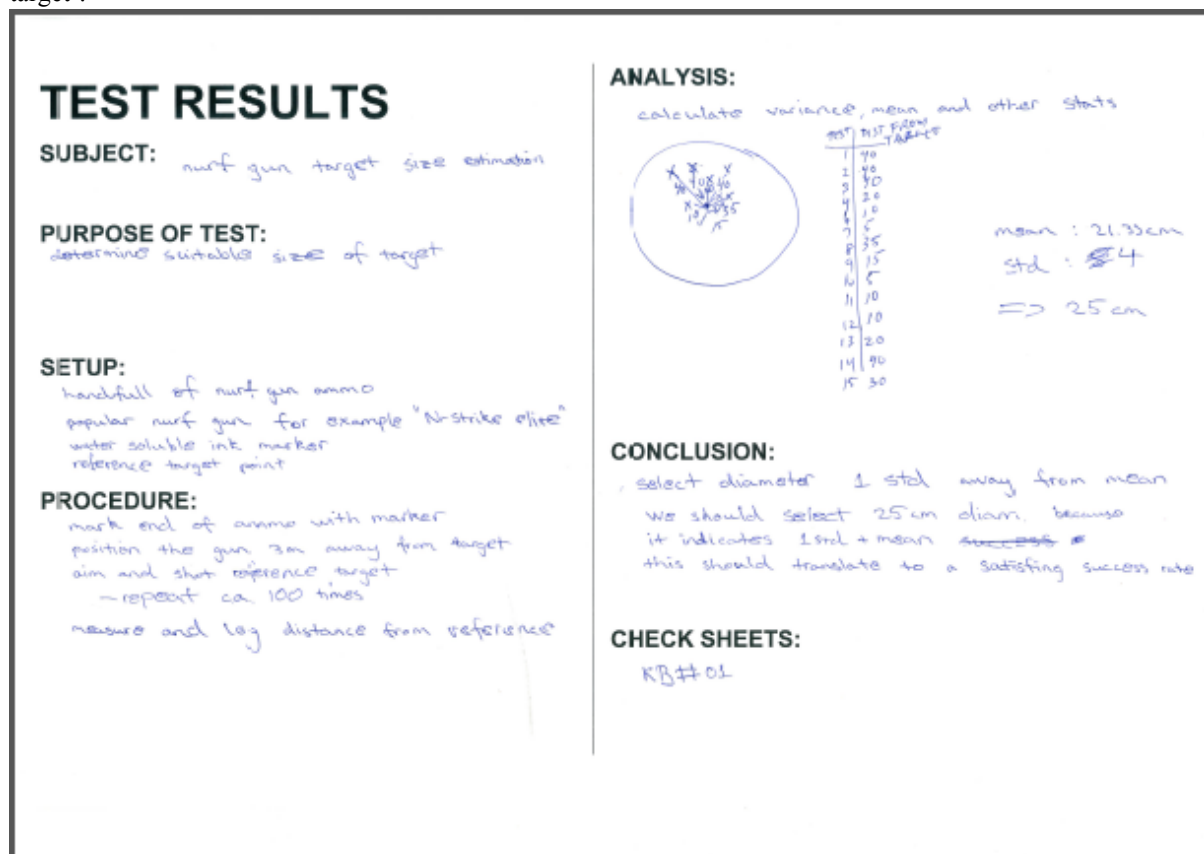 target .
TEST RESULTS
SUBJECT: nurf gun target size estimation
PURPOSE OF TEST:
determine suitable size of target
SETUP:
handfull of nurf gun ammo
popular nurf gun for example "N-strike elite"
water soluble ink marker
reference target point
PROCEDURE:
mark end of ammo with marker
position the gun 3m away from target
aim and shot reference target
~repeat ca. 100 times
measure and log distance from reference
ANALYSIS:
calculate variance, mean and other stats
TEST DIST FROM TARGET
1 40
2 40
3
4 20
10
7 5
8 35
9 15
10 5
11 10
12 10
13 20
14
15 30
40
35
10
15
mean : 21.33cm
std : 4
=> 25 cm
CONCLUSION:
select diameter 1 std away from mean
we should select 25 cm diam. because
it indicates 1 std + mean success
this should translate to a satisfing success rate
CHECK SHEETS:
KB#01